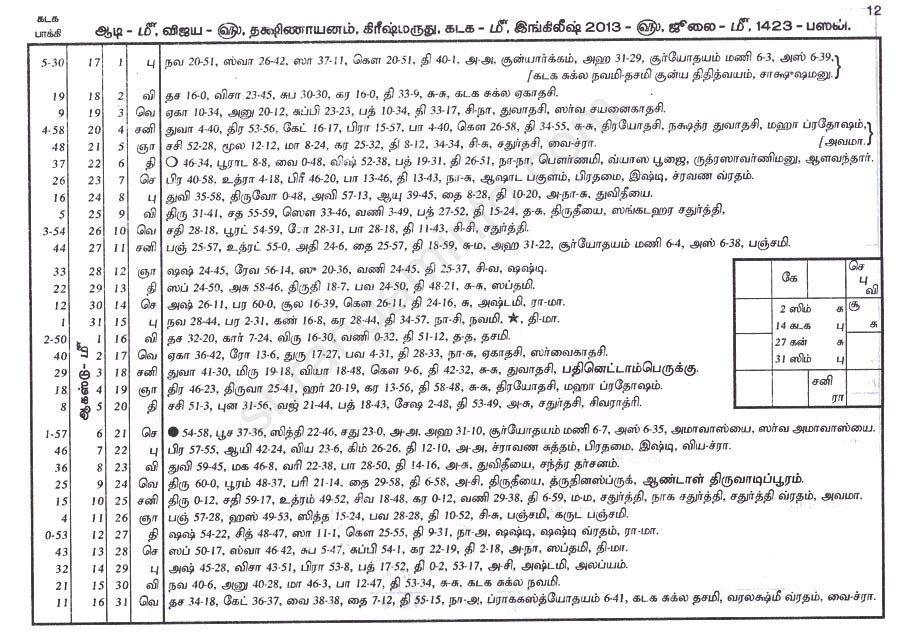 12
கடக பாக்கி
ஆடி - மீ, விஜய - ௵, தக்ஷிணாயனம், கிரீஷ்மருது, கடக - மீ, இங்கிலீஷ் 2013 - ௵, ஜூலை - மீ, 1423 - பஸலி.
5-30 17 1 பு நவ 20-51, ஸ்வா 26-42, ஸா 37-11, கௌ 20-51, தி 40-1, அ-அ, சூன்யார்க்கம், அஹ 31-29, சூர்யோதயம் மணி 6-3, அஸ் 6-39,
[கடக சுக்ல நவமி-தசமி சூன்ய திதித்வயம், சாக்ஷுஷமனு.
19 18 2 வி தச 16-0, விசா 23-45, சுப 30-30, கர 16-0, தி 33-9, சு-சு, கடக சுக்ல ஏகாதசி.
9 19 3 வெ ஏகா 10-34, அனு 20-12, சுப்பி 23-23, பத் 10-34, தி 33-17, சி-நா, துவாதசி, ஸர்வ சயனைகாதசி.
4-58 20 4 சனி துவா 4-40, திர 53-56, கேட் 16-17, பிரா 15-57, பா 4-40, கௌ 26-58, தி 34-55, சு-சு, திரயோதசி, நக்ஷத்ர துவாதசி, மஹா ப்ரதோஷம்,
[அவமா.
48 21 5 ஞா சசி 52-28, மூல 12-12, மா 8-24, கர 25-32, தி 8-12, 34-34, சி-சு, சதுர்தசி, வை-ச்ரா.
37 22 6 தி ○ 46-34, பூராட 8-8, வை 0-48, விஷ் 52-38, பத் 19-31, தி 26-51, நா-நா, பௌர்ணமி, வ்யாஸ பூஜை, ருத்ரஸாவர்ணிமனு, ஆளவந்தார்.
26 23 7 செ பிர 40-58, உத்ரா 4-18, பிரீ 46-20, பா 13-46, தி 13-43, நா-சு, ஆஷாட பகுளம், பிரதமை, இஷ்டி, ச்ரவண வ்ரதம்.
16 24 8 பு துவி 35-58, திருவோ 0-48, அவி 57-13, ஆயு 39-45, தை 8-28, தி 10-20, அ-நா-சு, துவிதீயை.
5 25 9 வி திரு 31-41, சத 55-59, ஸௌ 33-46, வணி 3-49, பத் 27-52, தி 15-24, த-சு, திருதீயை, ஸங்கடஹர சதுர்த்தி,
3-54 26 10 வெ சதி 28-18, பூரட் 54-59, ோ 28-31, பா 28-18, தி 11-43, சி-சி, சதுர்த்தி.
44 27 11 சனி பஞ் 25-57, உத்ரட் 55-0, அதி 24-6, தை 25-57, தி 18-59, சு-ம, அஹ 31-22, சூர்யோதயம் மணி 6-4, அஸ் 6-38, பஞ்சமி.
33 28 12 ஞா ஷஷ் 24-45, ரேவ 56-14, ஸு 20-36, வணி 24-45, தி 25-37, சி-வ, ஷஷ்டி.
22 29 13 தி ஸப் 24-50, அசு 58-46, திருதி 18-7, பவ 24-50, தி 48-21, சு-சு, ஸப்தமி.
12 30 14 செ அஷ் 26-11, பர 60-0, சூல 16-39, கௌ 26-11, தி 24-16, சு, அஷ்டமி, ரா-மா.
1 31 15 பு நவ 28-44, பர 2-31, கண் 16-8, கர 28-44, தி 34-57, நா-சி, நவமி, ★, தி-மா.
ஆகஸ்டு- மீ
2-50 1 16 வி தச 32-20, கார் 7-24, விரு 16-30, வணி 0-32, தி 51-12, த-த, தசமி.
40 2 17 வெ ஏகா 36-42, ரோ 13-6, துரு 17-27, பவ 4-31, தி 28-33, நா-சு, ஏகாதசி, ஸர்வைகாதசி.
29 3 18 சனி துவா 41-30, மிரு 19-18, வியா 18-48, கௌ 9-6, தி 42-32, சு-சு, துவாதசி, பதினெட்டாம்பெருக்கு.
18 4 19 ஞா திர 46-23, திருவா 25-41, ஹர் 20-19, கர 13-56, தி 58-48, சு-சு, திரயோதசி, மஹா ப்ரதோஷம்.
8 5 20 தி சசி 51-3, புன 31-56, வஜ் 21-44, பத் 18-43, சேஷ 2-48, தி 53-49, அ-சு, சதுர்தசி, சிவராத்ரி.
கே
செ பு வி
2 ஸிம் சு
14 கடக பு
27 கன் சு
31 ஸிம் பு
சூ
சு
சனி
ரா
1-57 6 21 செ ● 54-58, பூச 37-36, ஸித்தி 22-46, சது 23-0, அ-அ, அஹ 31-10, சூர்யோதயம் மணி 6-7, அஸ் 6-35, அமாவாஸ்யை, ஸர்வ அமாவாஸ்யை.
46 7 22 பு பிர 57-55, ஆயி 42-24, விய 23-6, கிம் 26-26, தி 12-10, அ-அ, ச்ராவண சுத்தம், பிரதமை, இஷ்டி, விய-ச்ரா.
36 8 23 வி துவி 59-45, மக 46-8, வரி 22-38, பா 28-50, தி 14-16, அ-சு, துவிதீயை, சந்த்ர தர்சனம்.
25 9 24 வெ திரு 60-0, பூரம் 48-37, பரி 21-14, தை 29-58, தி 6-58, அ-சி, திருதீயை, த்ருதினஸ்ப்ருக், ஆண்டாள் திருவாடிப்பூரம்.
15 10 25 சனி திரு 0-12, சதி 59-17, உத்ரம் 49-52, சிவ 18-48, கர 0-12, வணி 29-38, தி 6-59, ம-ம, சதுர்த்தி, நாக சதுர்த்தி, சதுர்த்தி வ்ரதம், அவமா.
4 11 26 ஞா பஞ் 57-28, ஹஸ் 49-53, ஸித்த 15-24, பவ 28-28, தி 10-52, சி-சு, பஞ்சமி, கருட பஞ்சமி.
0-53 12 27 தி ஷஷ் 54-22, சித் 48-47, ஸா 11-1, கௌ 25-55, தி 9-31, நா-அ, ஷஷ்டி, ஷஷ்டி வ்ரதம், ரா-மா.
43 13 28 செ ஸப் 50-17, ஸ்வா 46-42, சுப 5-47, சுப்பி 54-1, கர 22-19, தி 2-18, அ-நா, ஸப்தமி, தி-மா.
32 14 29 பு அஷ் 45-28, விசா 43-51, பிரா 53-8, பத் 17-52, தி 0-2, 53-17, அ-சி, அஷ்டமி, அலப்யம்.
21 15 30 வி நவ 40-6, அனு 40-28, மா 46-3, பா 12-47, தி 53-34, சு-சு, கடக சுக்ல நவமி.
11 16 31 வெ தச 34-18, கேட் 36-37, வை 38-38, தை 7-12, தி 55-15, நா-அ, ப்ராககஸ்த்யோதயம் 6-41, கடக சுக்ல தசமி, வரலக்ஷ்மீ வ்ரதம், வை-ச்ரா.